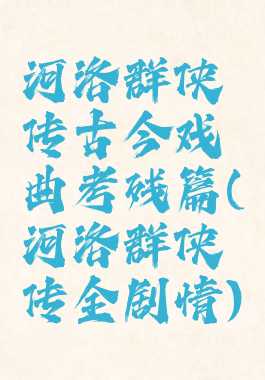 河洛群侠
传古今戏
曲考残篇(
河洛群侠
传全剧情)